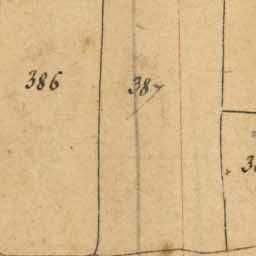 386
387